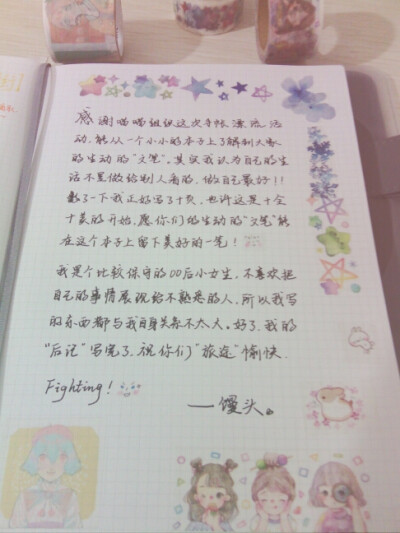 感谢喵喵组织这次手帐漂流活
动,能从一个小小的本子上了解到大家
的生动的"文笔",其实我认为自己的生
活不是做给别人看的,做自己最好!!
数了一下我正好写了十页,也许这是十全
十美的开始,愿你们的生动的"文笔"能
在这个本子上留下美好的一笔!
我是个比较保守的00后小女生,不喜欢把
自己的事情展现给不熟悉的人,所以我写
的东西都与我自身关系不太大。好了,我的
"后记"写完了,祝你们"旅途"愉快.
Fighting!
——馒头。